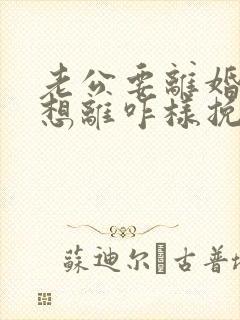 老公要離婚
想離咋樣挽
蘇迪尔 古普